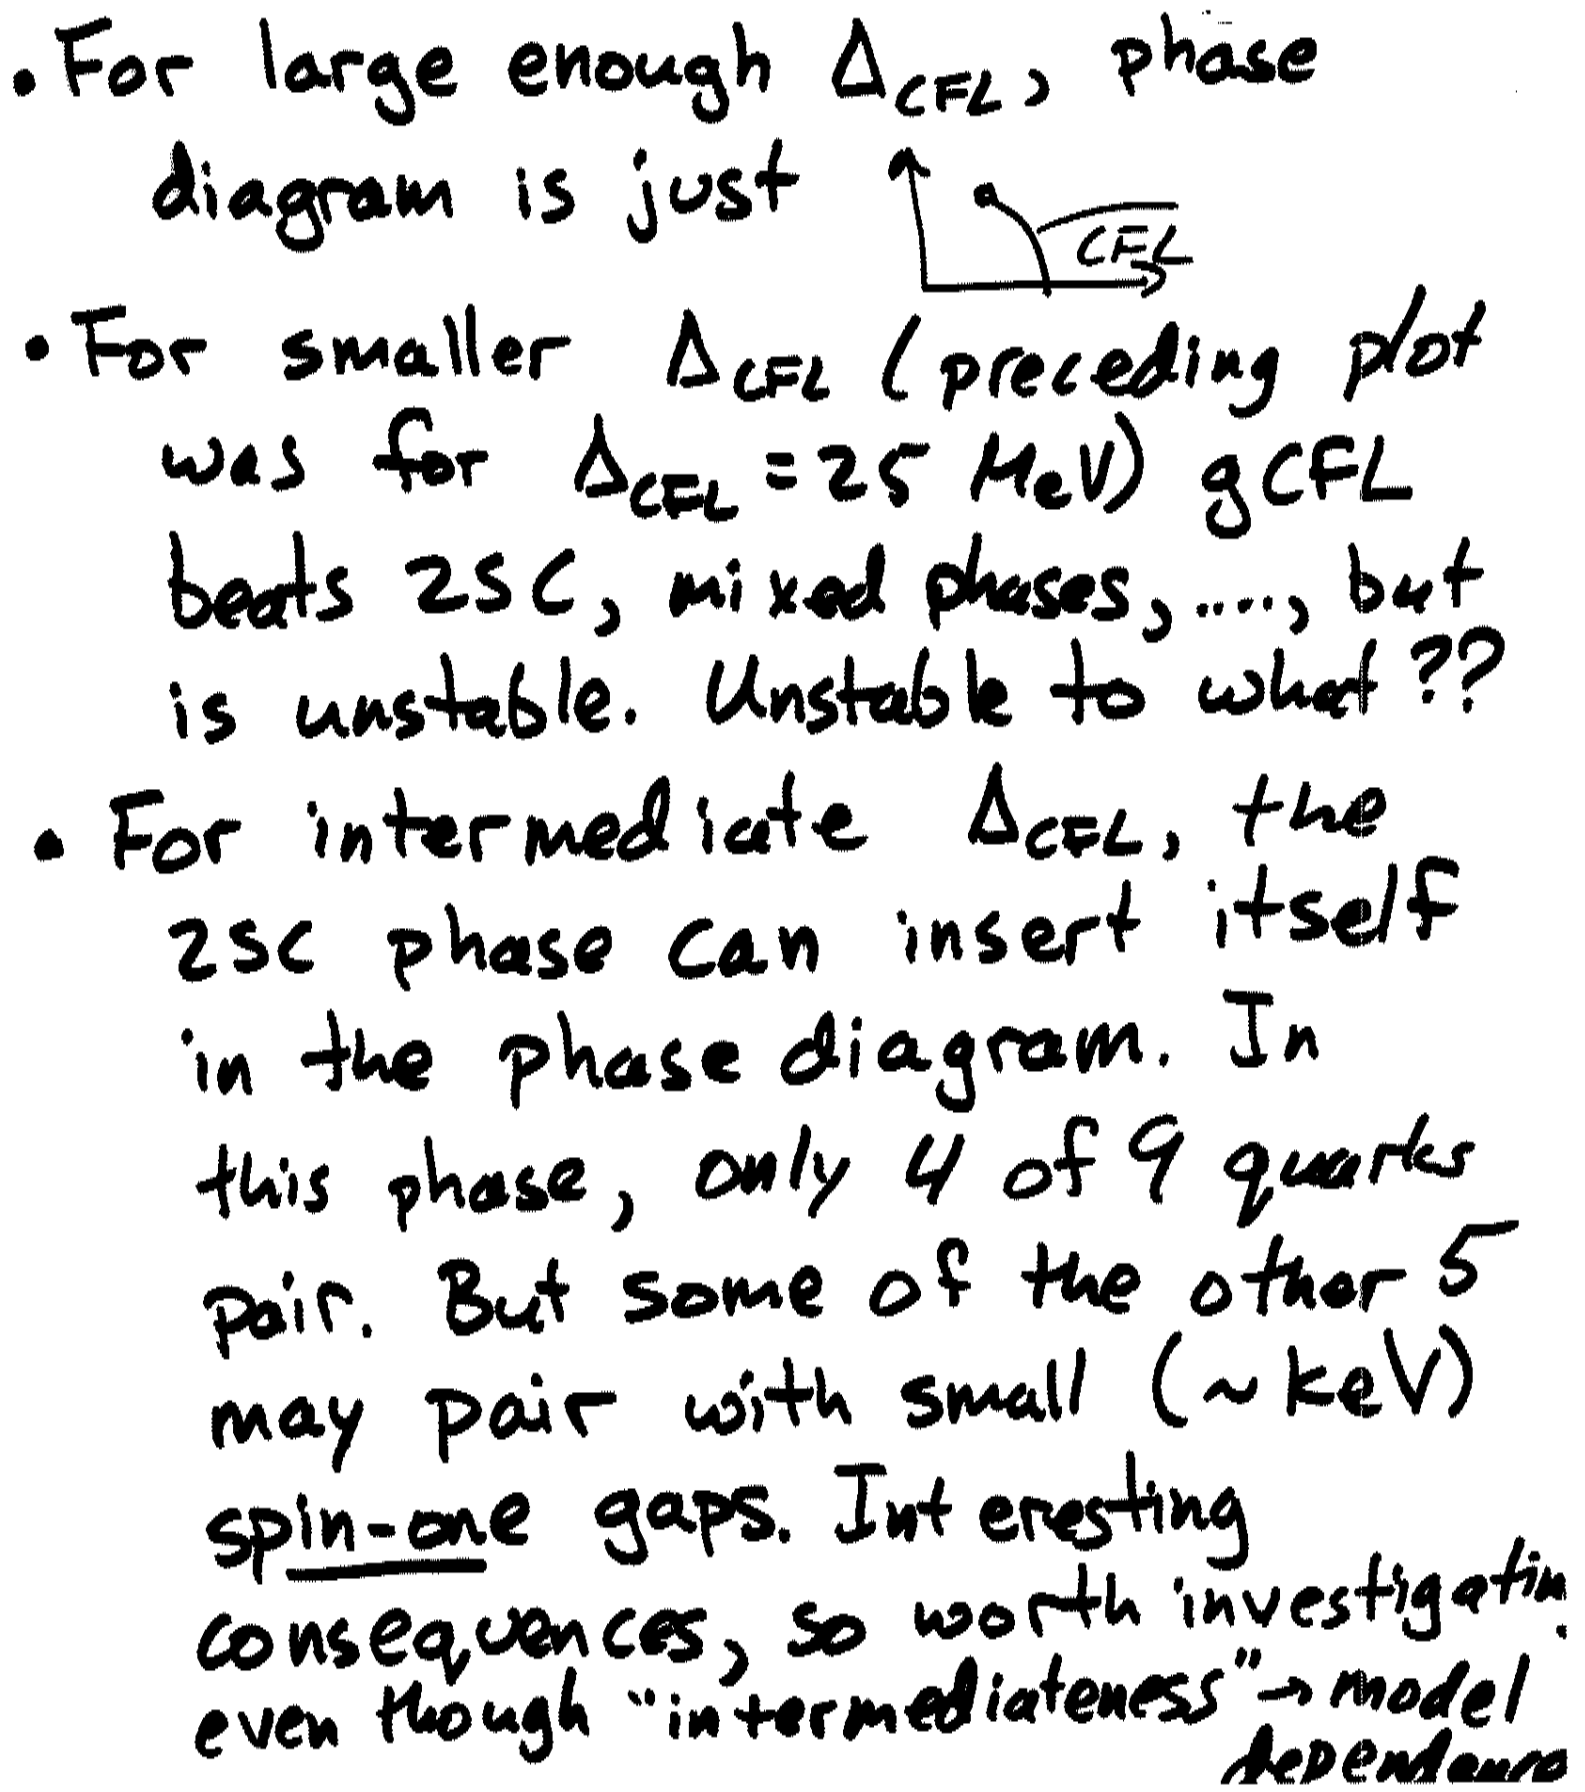 • For large enough Δ_CFL, phase
diagram is just
CFL
• For smaller Δ_CFL (preceding plot
was for Δ_CFL = 25 MeV) gCFL
beats 2SC, mixed phases, ...., but
is unstable. Unstable to what??
• For intermediate Δ_CFL, the
2SC phase can insert itself
in the phase diagram. In
this phase, only 4 of 9 quarks
pair. But some of the other 5
may pair with small (~keV)
spin-one gaps. Interesting
consequences, so worth investigatin
even though "intermediateness" → model
dependence